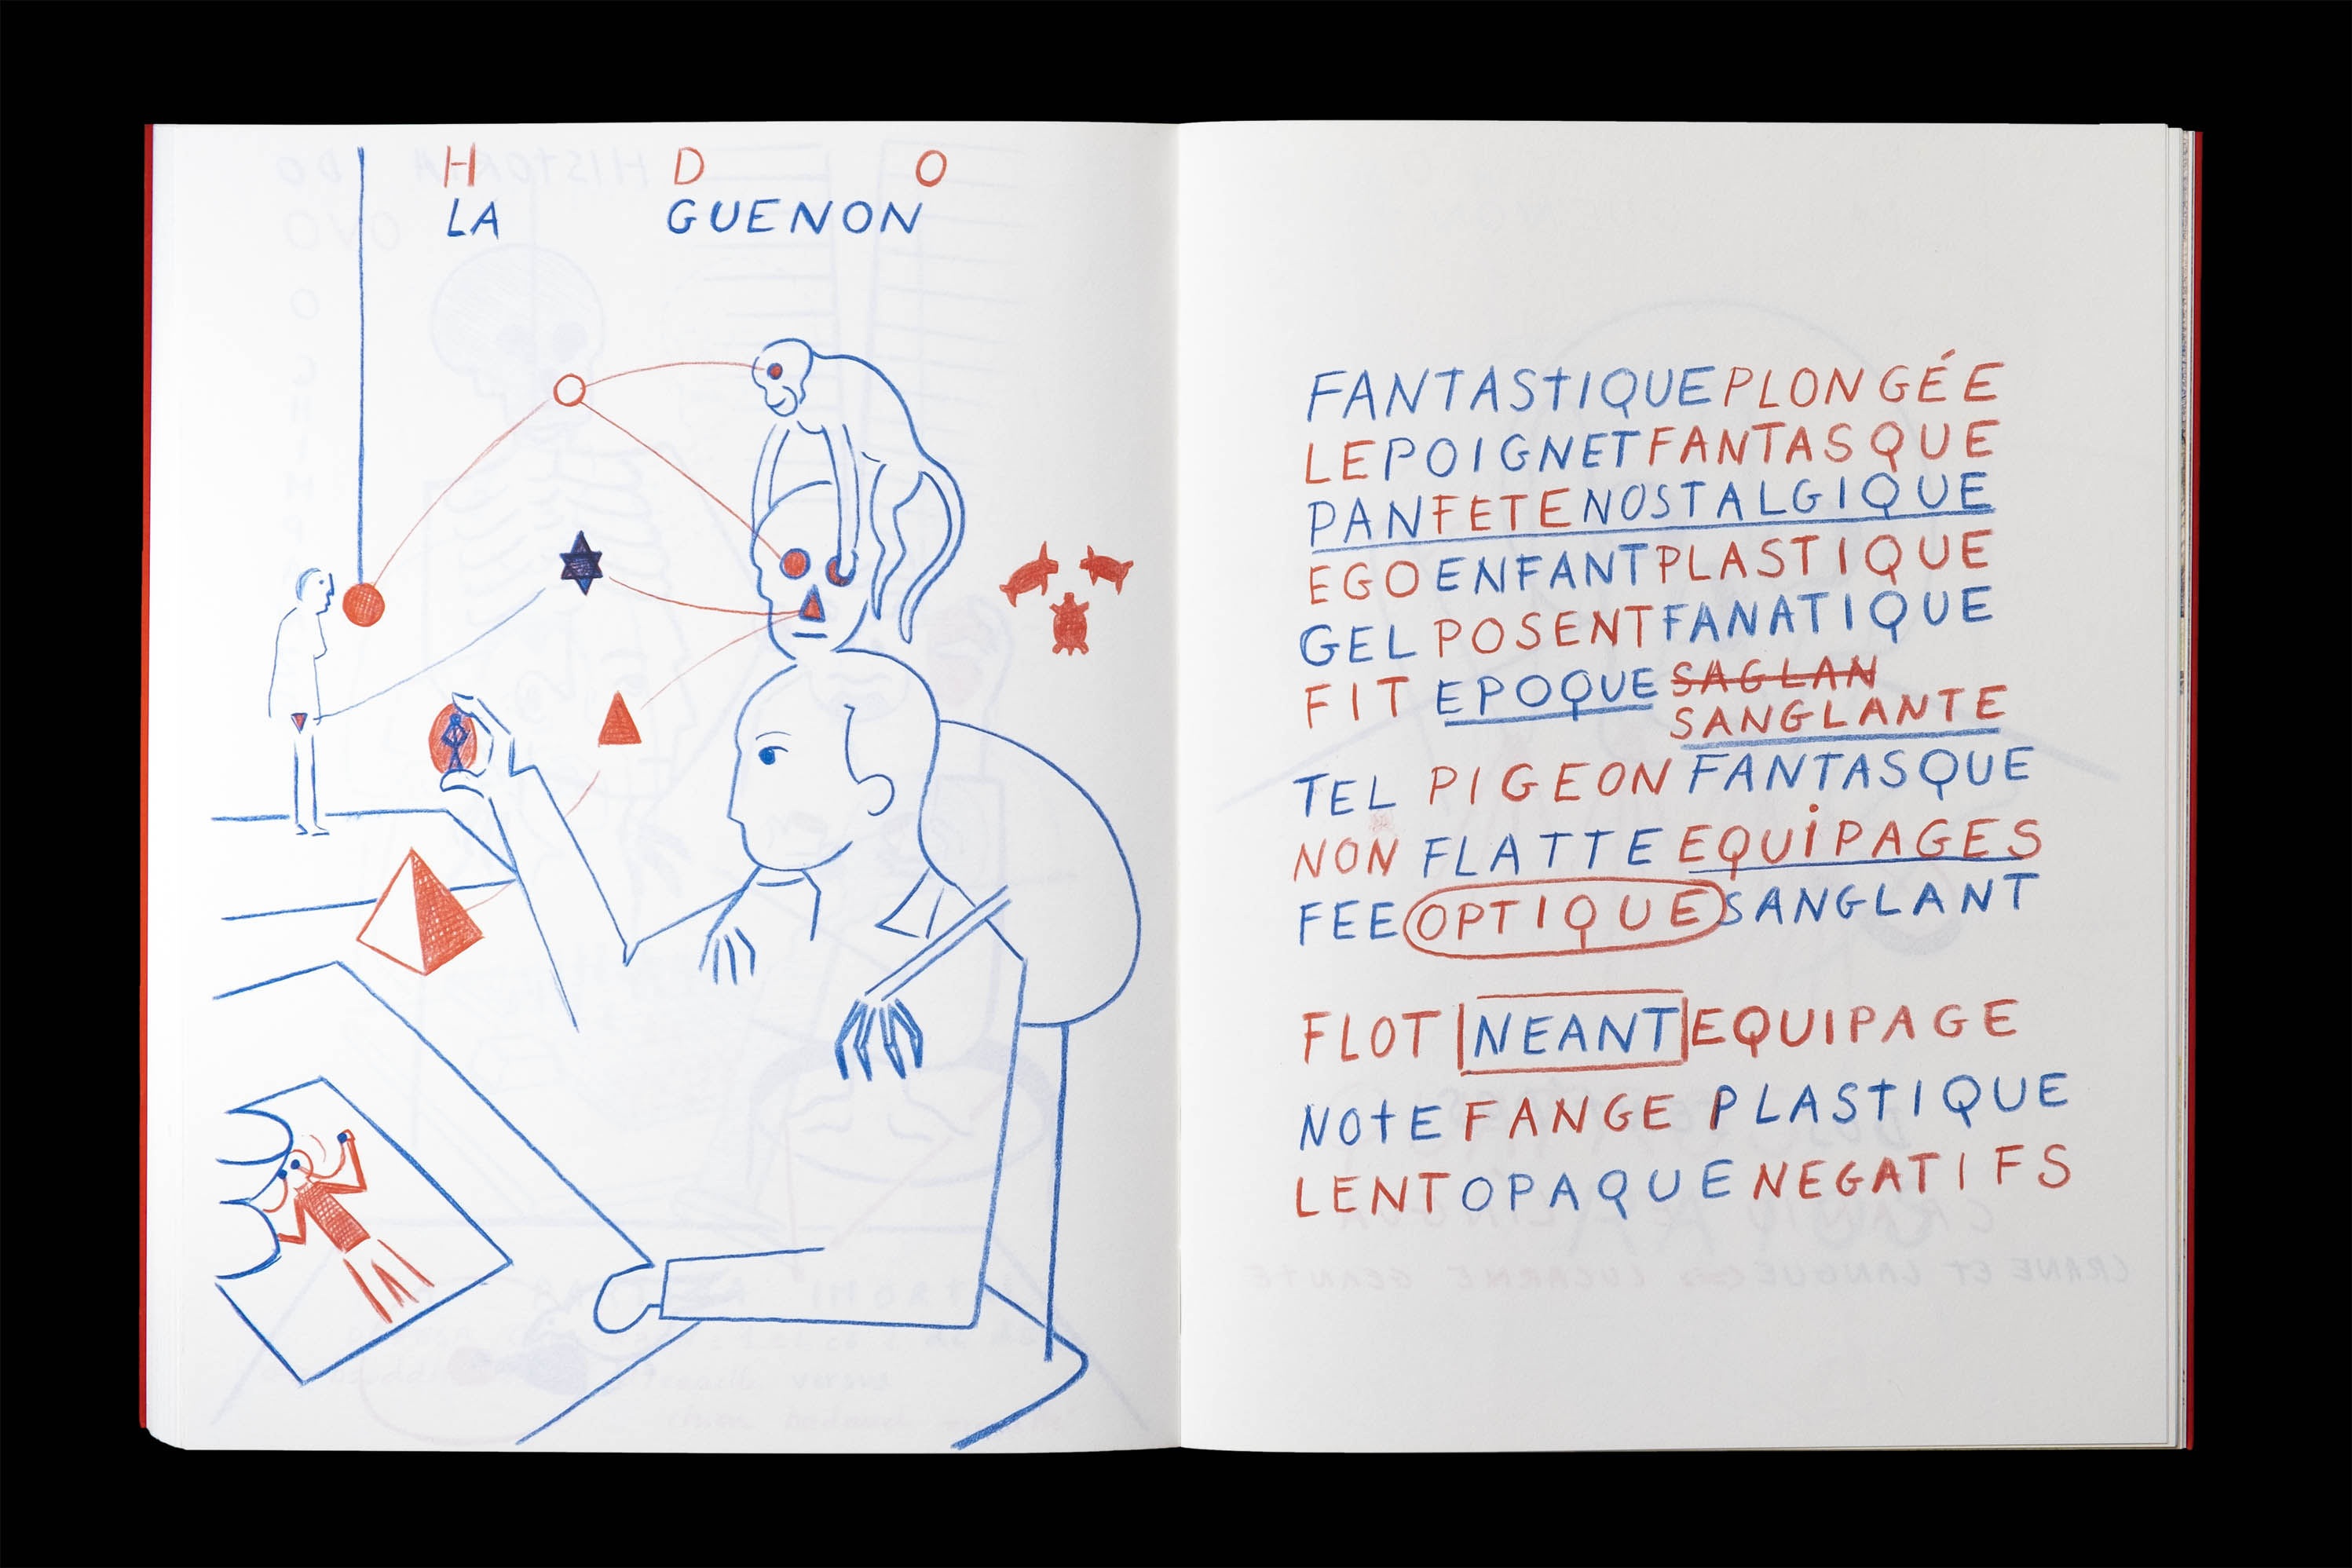 H D O
LA GUENON
FANTASTIQUEPLONGÉE
LEPOIGNETFANTASQUE
PANFETENOSTALGIQUE
EGOENFANTPLASTIQUE
GEL POSENTFANATIQUE
FIT EPOQUE SAGLAN
SANGLANTE
TEL PIGEON FANTASQUE
NON FLATTE EQUiPAGES
FEE OPTIQUE SANGLANT
FLOT NEANT EQUIPAGE
NOtE FANGE PLASTIQUE
LENTOPAQUE NEGATIFS